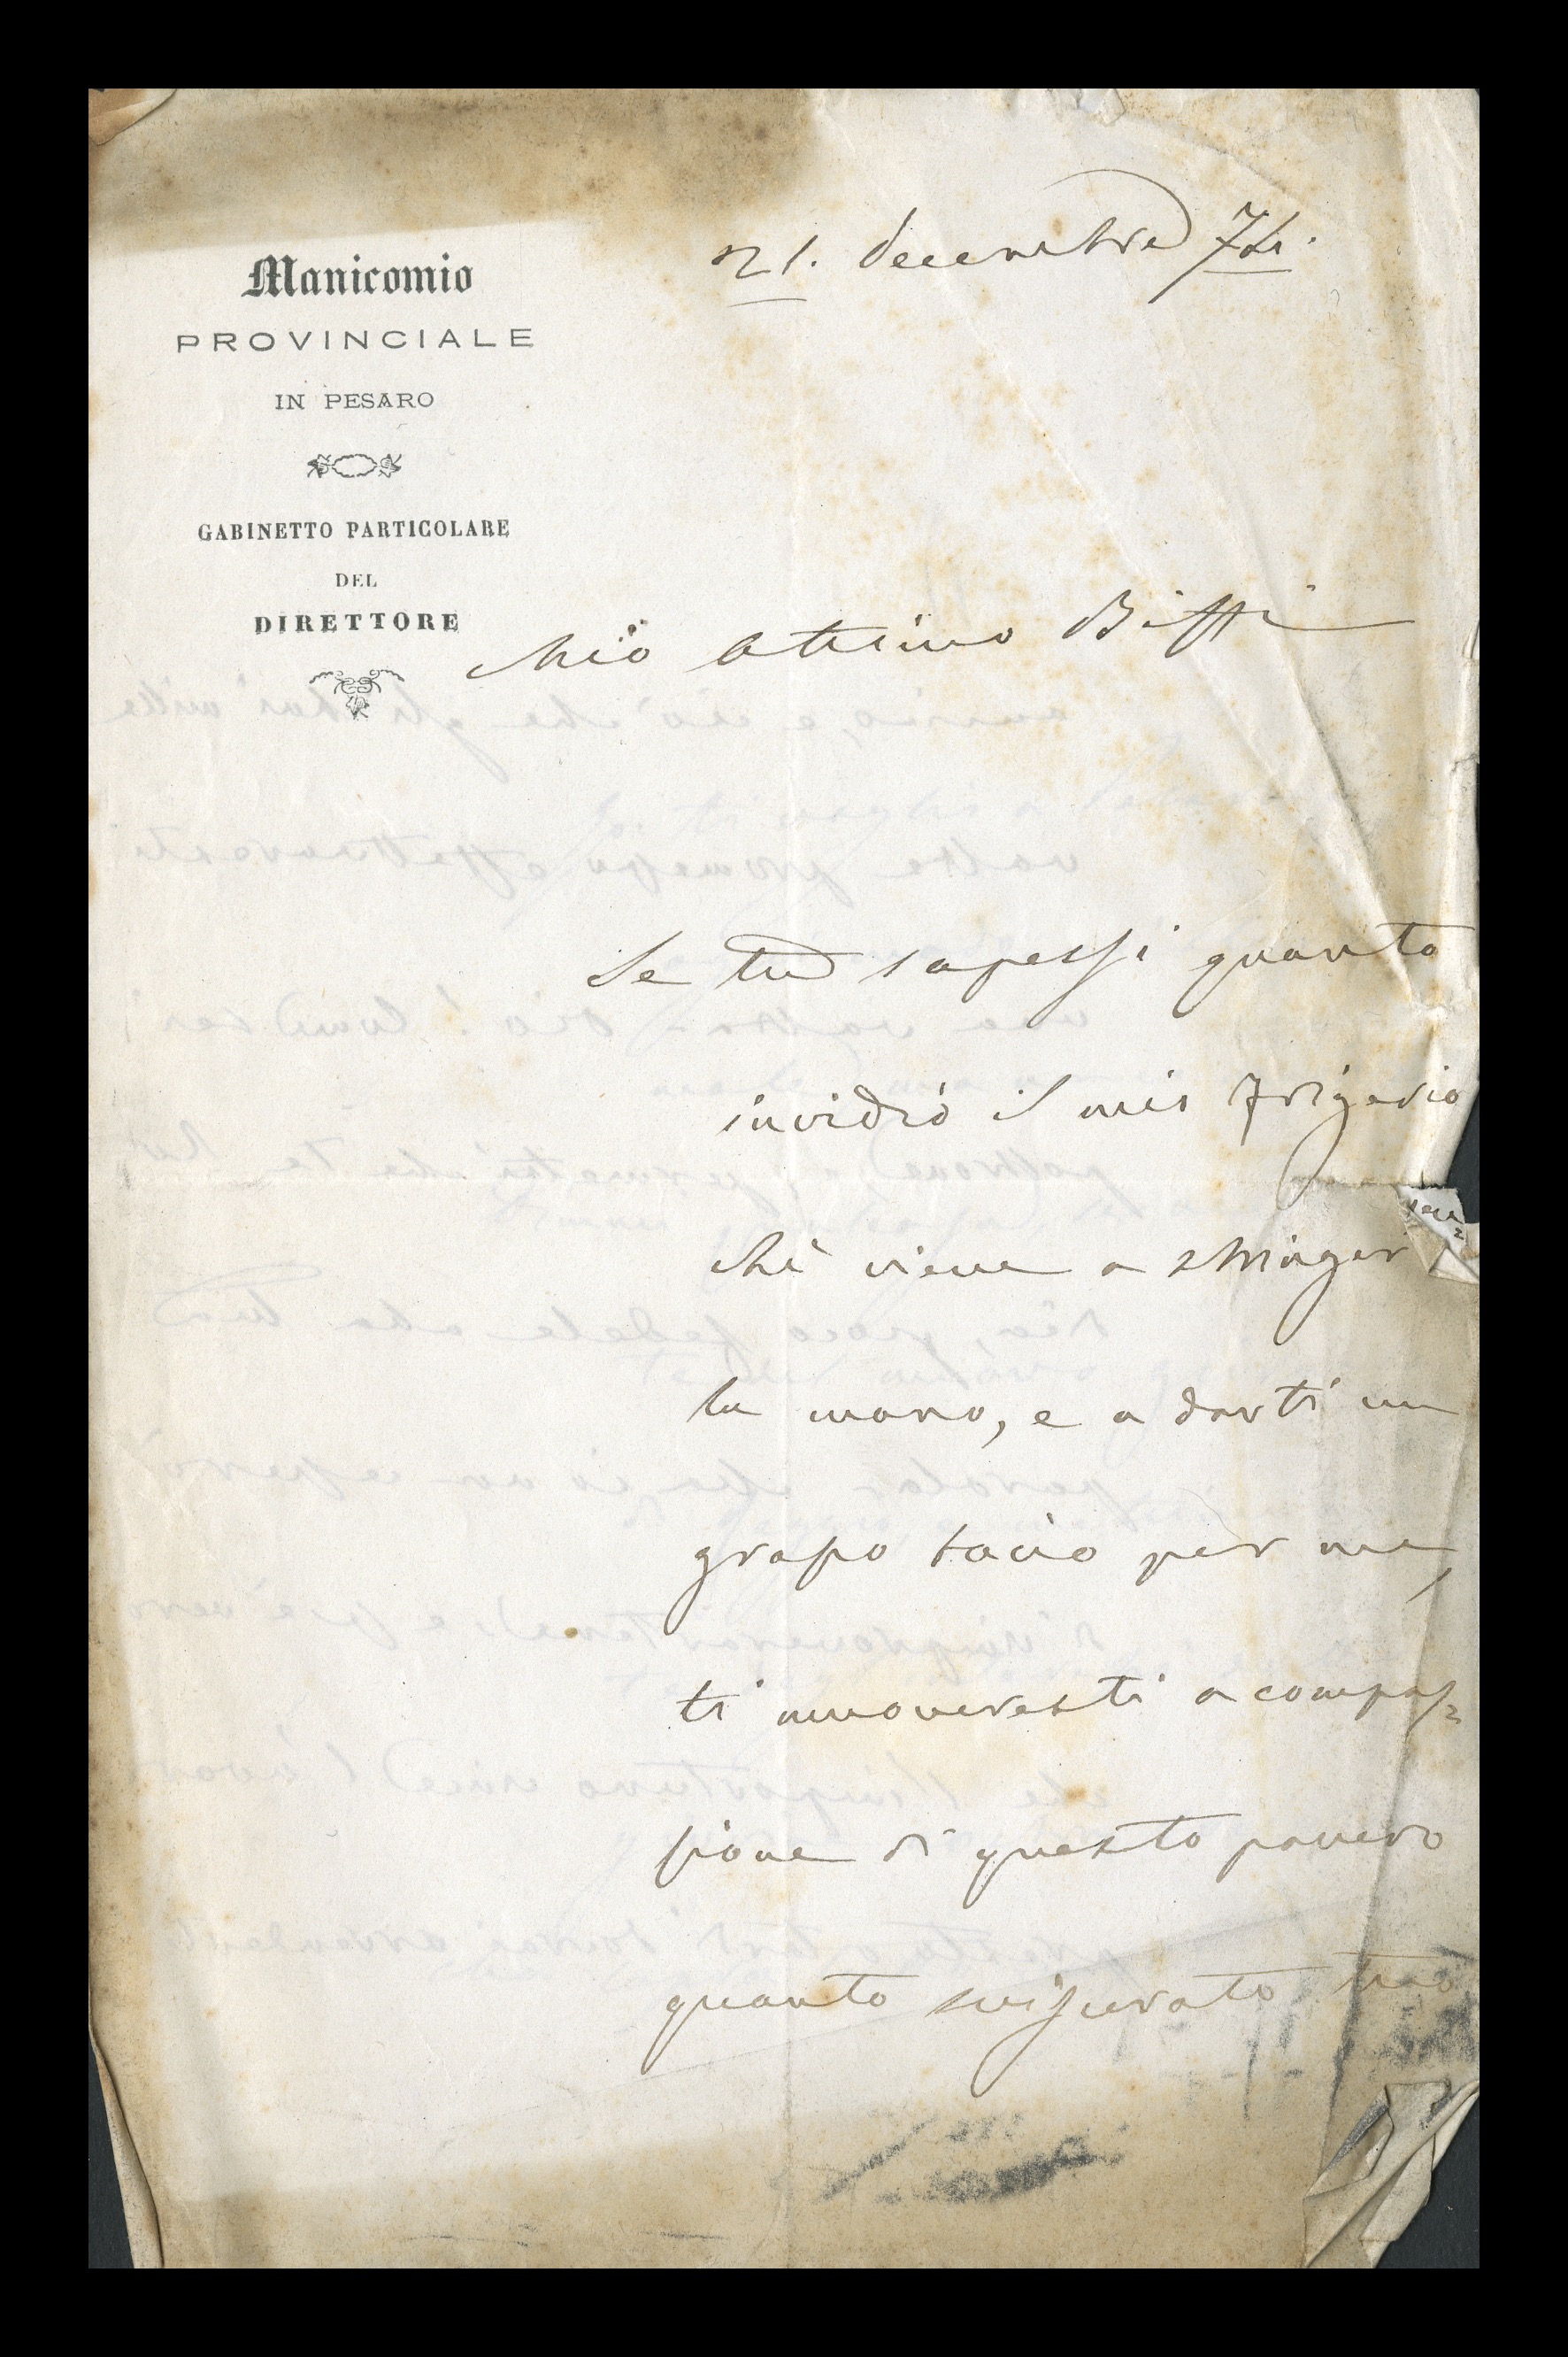 Manicomio
PROVINCIALE
IN PESARO
GABINETTO PARTICOLARE
DEL
DIRETTORE
21. decembre 74.
Mio ottimo Biffi
Se tu sapessi quanto
invidio il mio Frigerio
che viene a stringer
la mano, e a darti un
grosso bacio per me,
ti muoveresti a compas=
sione di questo povero
quanto sviscerato tuo